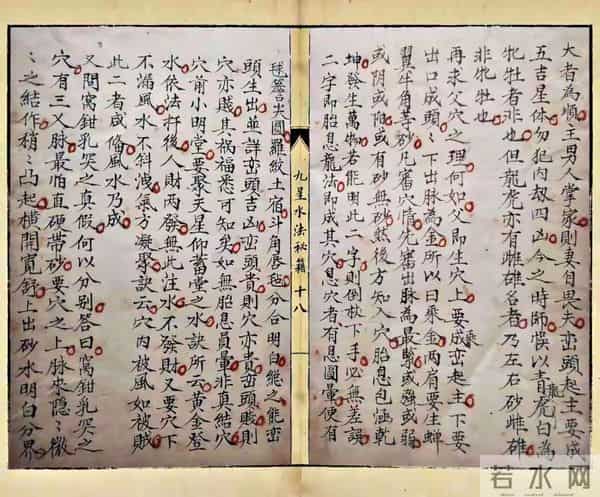 大者為順主男人掌家則妻自畏夫巒頭起主要成
五吉星体勿犯肉刼四凶今之時師悮以青龍白虎為
牝牡者非也但龍虎亦有雌雄名者乃左右砂雌雄
非牝牡也
再求父穴之理何如父即生穴上要成巒起主下要乘
出口成頭：下出脉為金所以曰乘金两肩要生蟬
翼牛角等砂凢審穴情先審出脉為最緊或強或弱
或陰或陽或有砂無砂然後方知入穴胎息包涵乾
坤發生萬物若能明此二字則倒杖下手必無差誤
二字即胎息龍法即成其穴息穴者有息圓暈便有
毬簷尖圓羅紋土宿斗角唇毡分合明白能之能巒
頭生出並詳巒頭吉凶巒頭貴則穴亦貴巒頭賎則
穴亦賎其禍福悉可知矣如無胎息員暈非真結穴
穴前小明堂要聚天星仰蓄堂之水訣所云黄金登
水依法杆後人財两發無此注水不發財又要穴下
不漏風水不斜洩氣方凝聚訣云穴內被風如被賊
此二者成俻風水乃成
又問窩鉗乳突之真假何以分别答曰窩鉗乳突之
穴有三乂脉最怕直硬帶砂要穴之上脉來隐：微
：之結作稍：凸起橫開寬舒上出砂水明白分界
九星水法秘籍 十八
若水网